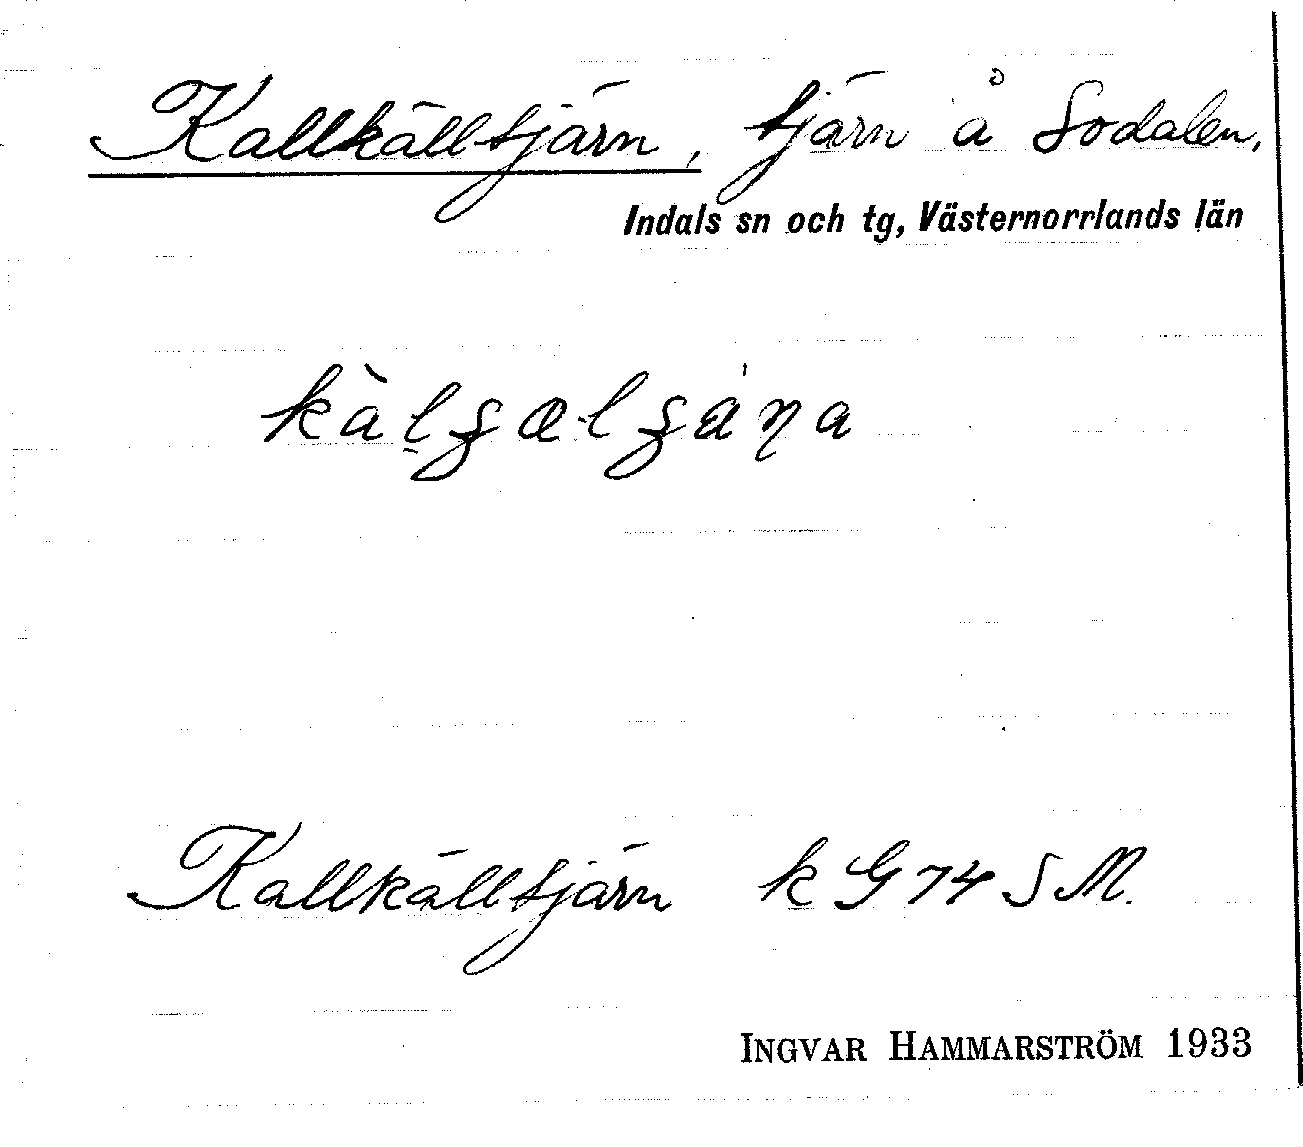 Kallkälltjärn, tjärn å Sodalen,
Indals sn och tg, Västernorrlands län
Kallkälltjärn k G 74 S M.
INGVAR HAMMARSTRÖM 1933